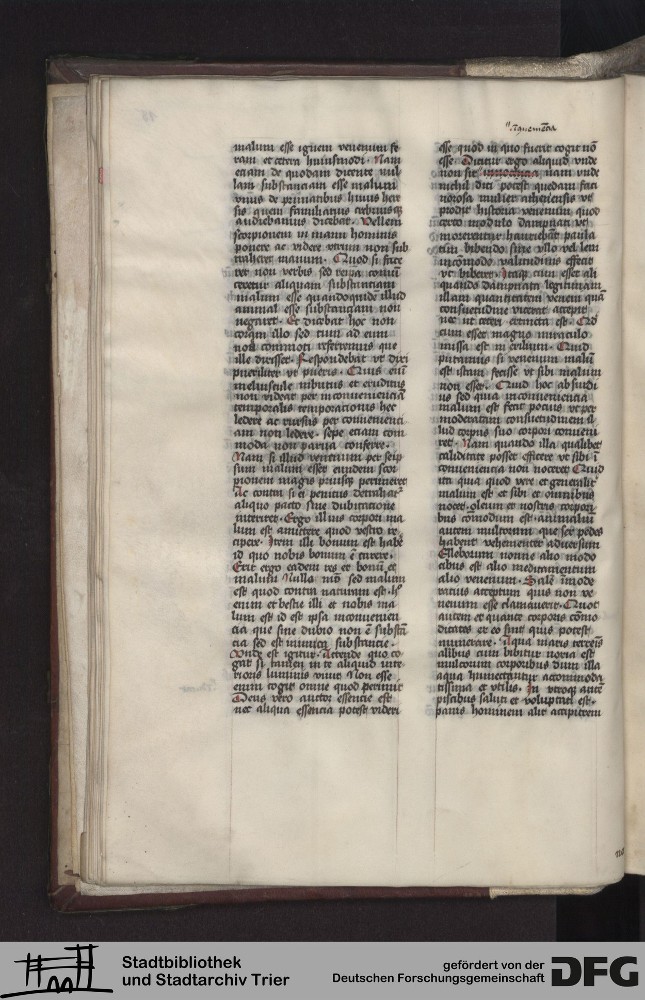 malum esse ignem venenum fe
ram et cetera huiusmodi. Nam
etiam de quodam dicente nul
lam substanciam esse malum
vnus de primatibus huius here
sis quem familiarius crebriusq̃
audiebamus dicebat. Vellem
scorpionem in manu hominis
ponere ac videre vtrum non sub
traheret manum. Quod si face
ret non verbis sed re ipsa conuī
ceretur aliquam substanciam
malum esse quandoquidē illud
animal esse substanciam non
negaret. Et dicebat hoc non
coram illo sed cum ad eum
nos commoti referremus que
ille dixisset. Respondebat vt dixi
pueriliter vt pueris. Quis enī
meliuscule inbutus et eruditus
non videat per inconuenienciā
temporalis temporacionis hec
ledere ac rursus per conuenienci
am non ledere. sepe etiam com
moda non parua conferre.
Nam si illud venenum per seip
sum malum esset eundem scor
pionem magis priusq̃ perimeret
At contra si ei penitus detrahat᷑
aliquo pacto sine dubitacione
interiret. Ergo illius corpori ma
lum est amittere quod nostro re
cipere. Item illi bonum est habē
id quo nobis bonum ē carere.
Erit ergo eadem res et bonū et
malum Nullo modo sed malum
est quod contra naturam est. h̄
enim et bestie illi et nobis ma
lum est id est ipsa inconuenien
cia que sine dubio non ē substā
cia sed est inimica substancie.
Vnde est igitur. Attende quo co
gat si tamen in te aliquid inte
rioris luminis viuit Non esse
enim cogit omne quod perimit
Deus vero auctor essencie est
nec aliqua essencia potest videri
Inquemēcia
esse quod in quo fuerit cogit nō
esse. Dicitur ergo aliquid vnde
non sit nam vnde
nichil dici potest quedam faci
norosa mulier atheniensis vt
prodit historia venenum quod
certo modulo dampnati vt
morerentur hauriebant paula
tim bibendo sine vllo vel leui
incōmodo valitudinis effecit
vt biberet. Itaq̃ cum esset ali
quando dampnata legitimam
illam quantitatem veneni quā
consuetudine vicerat accepit
nec vt ceteri extincta est. Qd̄
cum esset magno miraculo
missa est in exilium. Quid
putamus si venenum malū
est istam fecisse vt sibi malum
non esset. Quid hoc absurdi
us sed quia inconueniencia
malum est fecit pocius vt per
moderatam consuetudinem il
lud corpus suo corpori conueni
ret. Nam quando illa qualibet
caliditate posset efficere vt sibi ī
conueniencia non noceret Quid
ita quia quod vere et generalit᷑
malum est et sibi et omnibus
nocet. oleum et nostris corpori
bus cōmodum est. animaliū
autem multorum que sex pedes
habent vehementer aduersum
Elleborum nonne alio modo
cibus est alio medicamentum
alio venenum. Salē īmode
racius acceptum quis non ve
nenum esse clamauerit. Quot
autem et quante corporis cōmo
ditates ex eo sint quis potest
numerare. Aqua maris terrenis
alibus cum bibitur noxia est
multorum corporibus dum illa
aqua humectantur accommoda
tissima et vtilis. In vtroq̃ autē
piscibus saluti et voluptati est.
panis hominem alit accipitrem
Stadtbibliothek
und Stadtarchiv Trier
gefördert von der
Deutschen Forschungsgemeinschaft
DFG